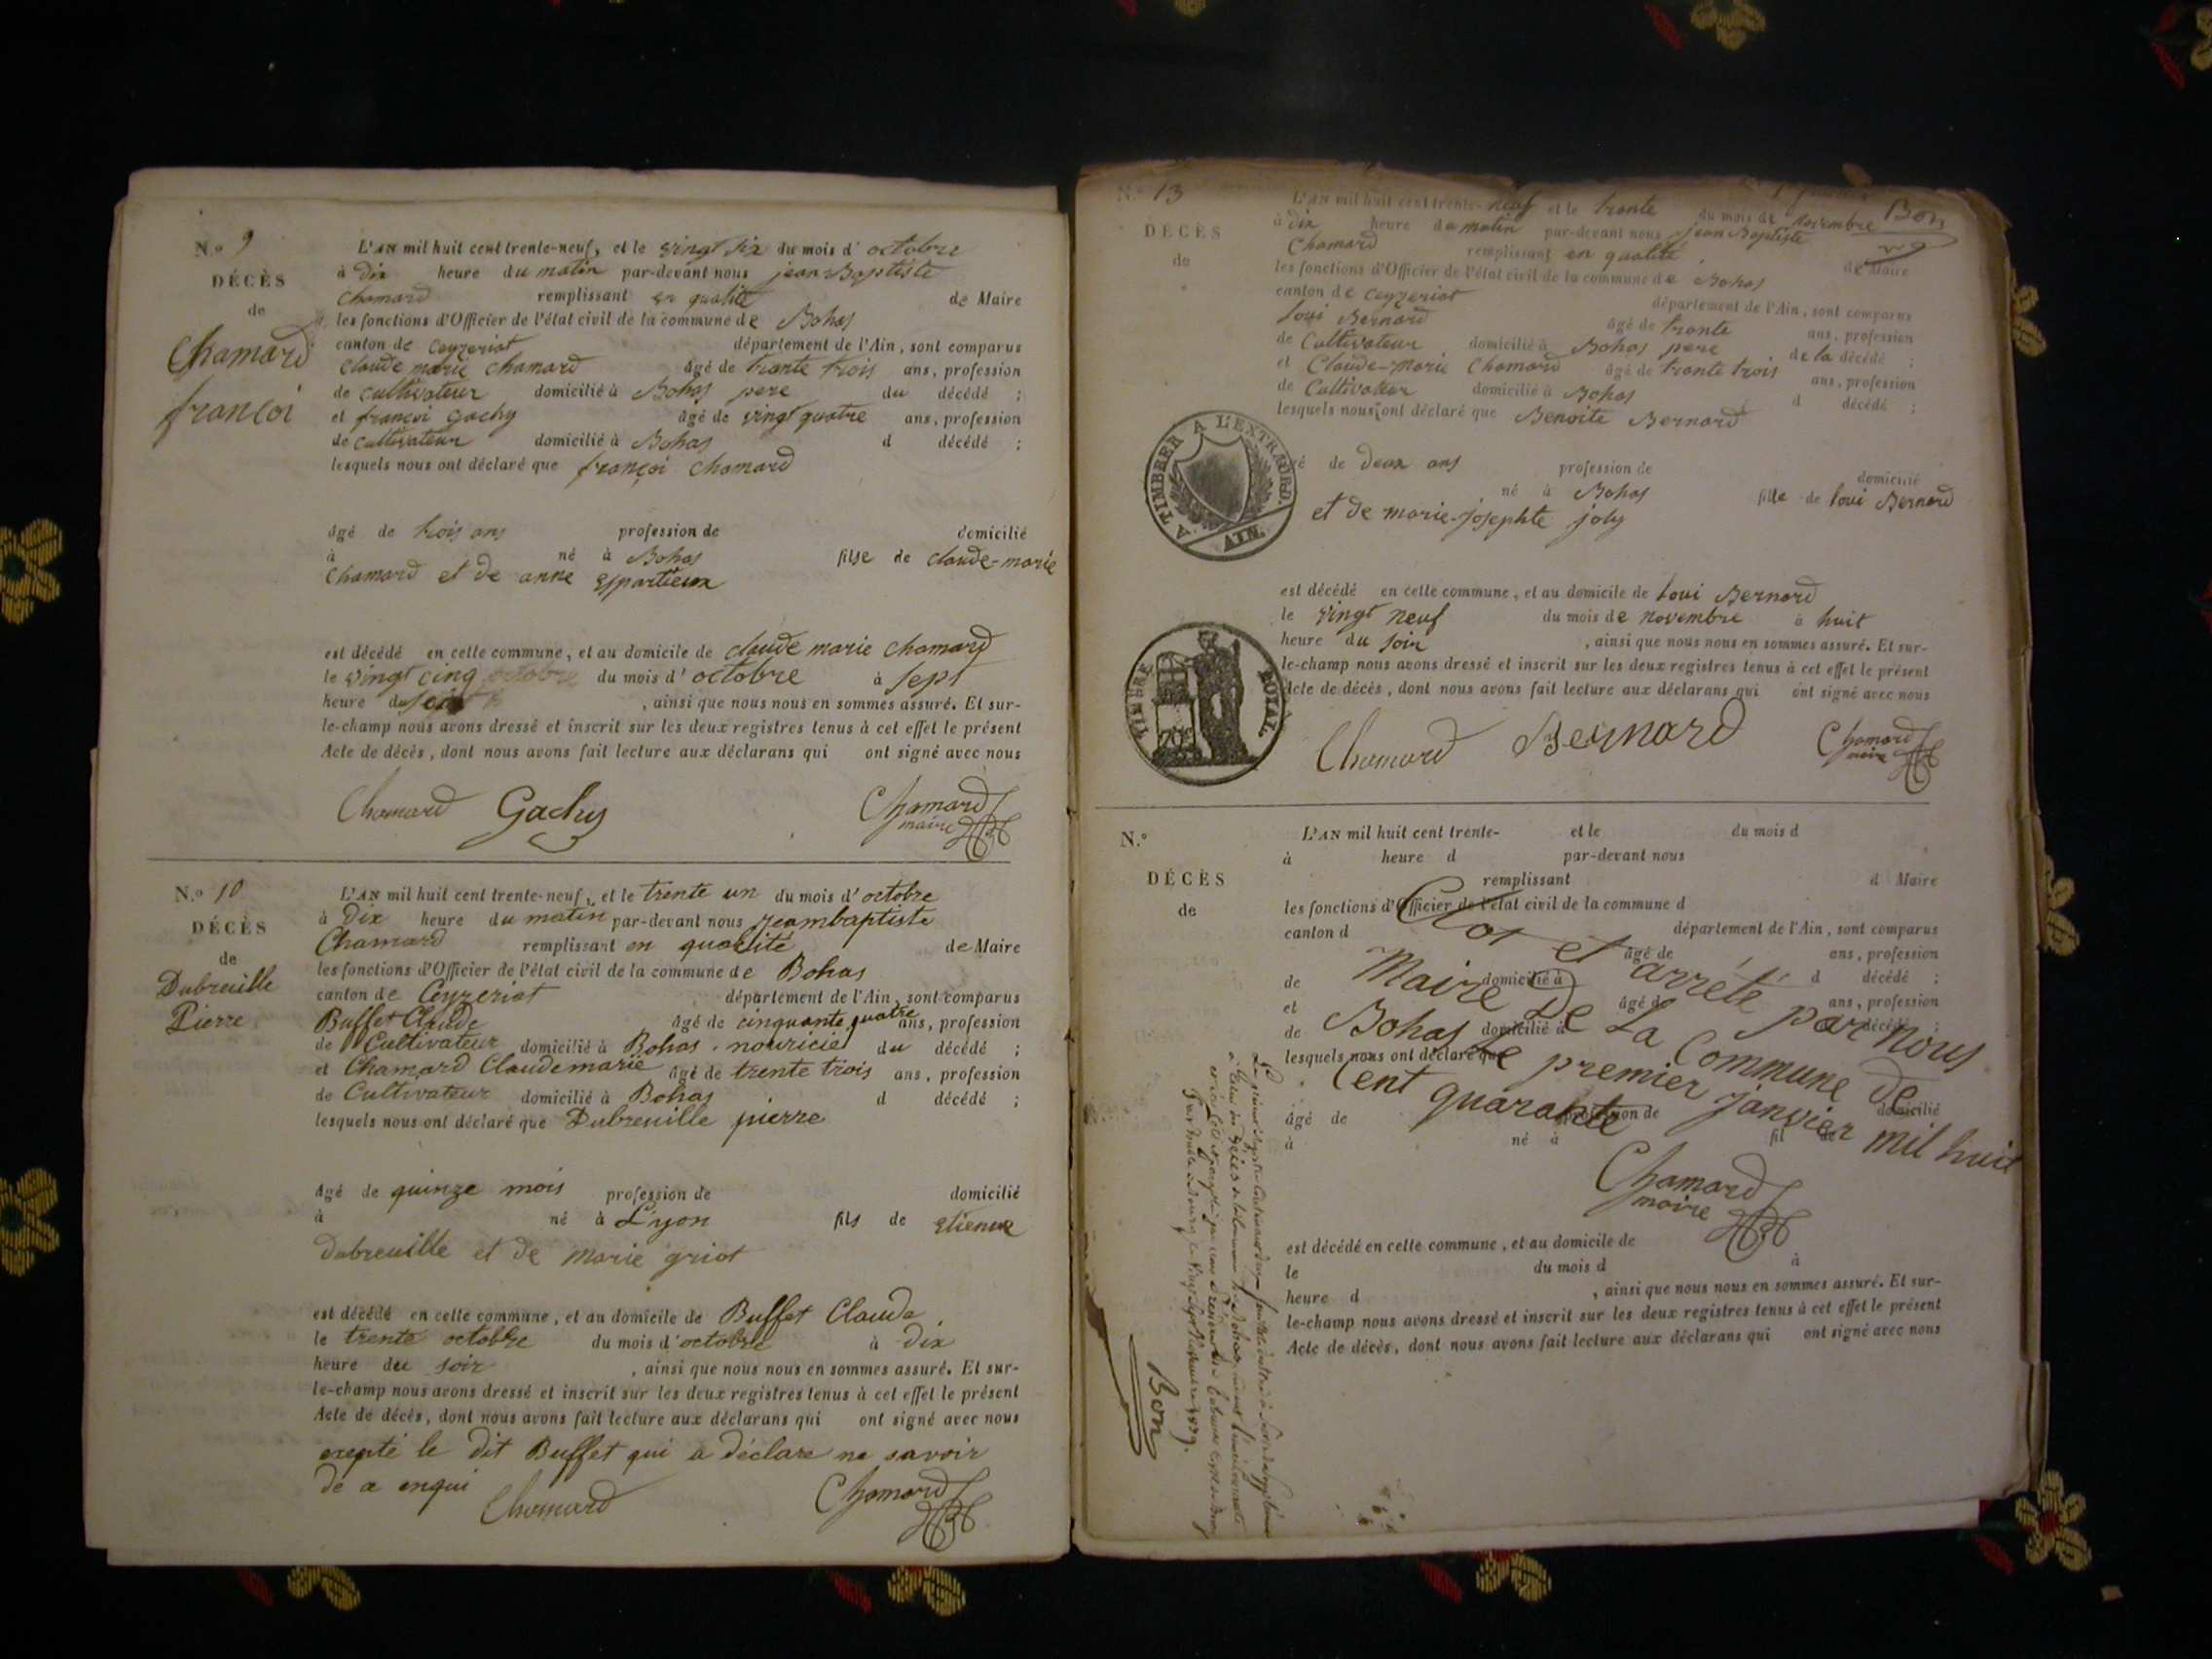 N.o 9
DÉCÈS
de
Chamard
françoi
L'AN mil huit cent trente-neuf, et le vingt six du mois d' octobre
à dix heure du matin par-devant nous jean Baptiste
Chamard remplissant en qualité de Maire
les fonctions d'Officier de l'état civil de la commune de Bohas
canton de Ceyzeriat département de l'Ain, sont comparus
Claude marie chamard âgé de trante trois ans, profession
de cultivateur domicilié à Bohas pere du décédé ;
et françoi Gachy âgé de vingt quatre ans, profession
de cultivateur domicilié à Bohas d décédé ;
lesquels nous ont déclaré que françoi chamard
âgé de trois ans profession de domicilié
à né à Bohas filse de claude-marie
Chamard et de anne
est décédé en cette commune, et au domicile de claude marie chamard
le vingt cinq octobre du mois d' octobre à sept
heure du soir , ainsi que nous nous en sommes assuré. Et sur-
le-champ nous avons dressé et inscrit sur les deux registres tenus à cet effet le présent
Acte de décès, dont nous avons fait lecture aux déclarans qui ont signé avec nous
Chamard Gachy Chamard
maire
N.o 10
DÉCÈS
de
Dubreuille
Pierre
L'AN mil huit cent trente-neuf, et le trente un du mois d' octobre
à Dix heure du matin par-devant nous jeambaptiste
Chamard remplissant en qualité de Maire
les fonctions d'Officier de l'état civil de la commune de Bohas
canton de Ceyzeriat département de l'Ain, sont comparus
Buffet Claude âgé de cinquante quatre ans, profession
de Cultivateur domicilié à Bohas nouricier du décédé ;
et Chamard Claudemarie âgé de trente trois ans, profession
de Cultivateur domicilié à Bohas d décédé ;
lesquels nous ont déclaré que Dubreuille pierre
âgé de quinze mois profession de domicilié
à né à Lyon fils de etienne
Dubreuille et de marie griot
est décédé en cette commune, et au domicile de Buffet Claude
le trente octobre du mois d' octobre à dix
heure du soir , ainsi que nous nous en sommes assuré. Et sur-
le-champ nous avons dressé et inscrit sur les deux registres tenus à cet effet le présent
Acte de décès, dont nous avons fait lecture aux déclarans qui ont signé avec nous
exepté le dit Buffet qui a déclare ne savoir
de a enqui
Chamard Chamard
N.o 13
DÉCÈS
de
L'AN mil huit cent trente-neuf et le trente du mois de novembre Bon
à dix heure du matin par-devant nous jean Baptiste
Chamard remplissant en qualité de Maire
les fonctions d'Officier de l'état civil de la commune de Bohas
canton de Ceyzeriat département de l'Ain, sont comparus
Loui Bernard âgé de trante ans, profession
de Cultivateur domicilié à Bohas pere de la décédé ;
et Claude-Marie Chamard âgé de trante trois ans, profession
de Cultivateur domicilié à Bohas d décédé ;
lesquels nous ont déclaré que Benoite Bernard
A TIMBRER A L'EXTRAORD.
AIN.
de deux ans profession de domicilié
né à Bohas fille de loui Bernard
et de marie-josephte joly
TIMBRE ROYAL
est décédé en cette commune, et au domicile de loui Bernard
le vingt neuf du mois de novembre à huit
heure du soir , ainsi que nous nous en sommes assuré. Et sur-
le-champ nous avons dressé et inscrit sur les deux registres tenus à cet effet le présent
Acte de décès, dont nous avons fait lecture aux déclarans qui ont signé avec nous
Chamard Bernard Chamard
maire
N.o
DÉCÈS
de
L'AN mil huit cent trente- et le du mois d
à heure d par-devant nous
remplissant d Maire
les fonctions d'Officier de l'état civil de la commune d
canton d département de l'Ain, sont comparus
âgé de ans, profession
de domicilié à d décédé ;
et âgé de ans, profession
de domicilié à décédé ;
lesquels nous ont déclaré que
Clos et arrété par nous
Maire De La Commune de
Bohas le premier janvier mil huit
Cent quarante
âgé de profession de domicilié
à né à fil de
Chamard
maire
est décédé en cette commune, et au domicile de
le du mois d à
heure d , ainsi que nous nous en sommes assuré. Et sur-
le-champ nous avons dressé et inscrit sur les deux registres tenus à cet effet le présent
Acte de décès, dont nous avons fait lecture aux déclarans qui ont signé avec nous
Bon